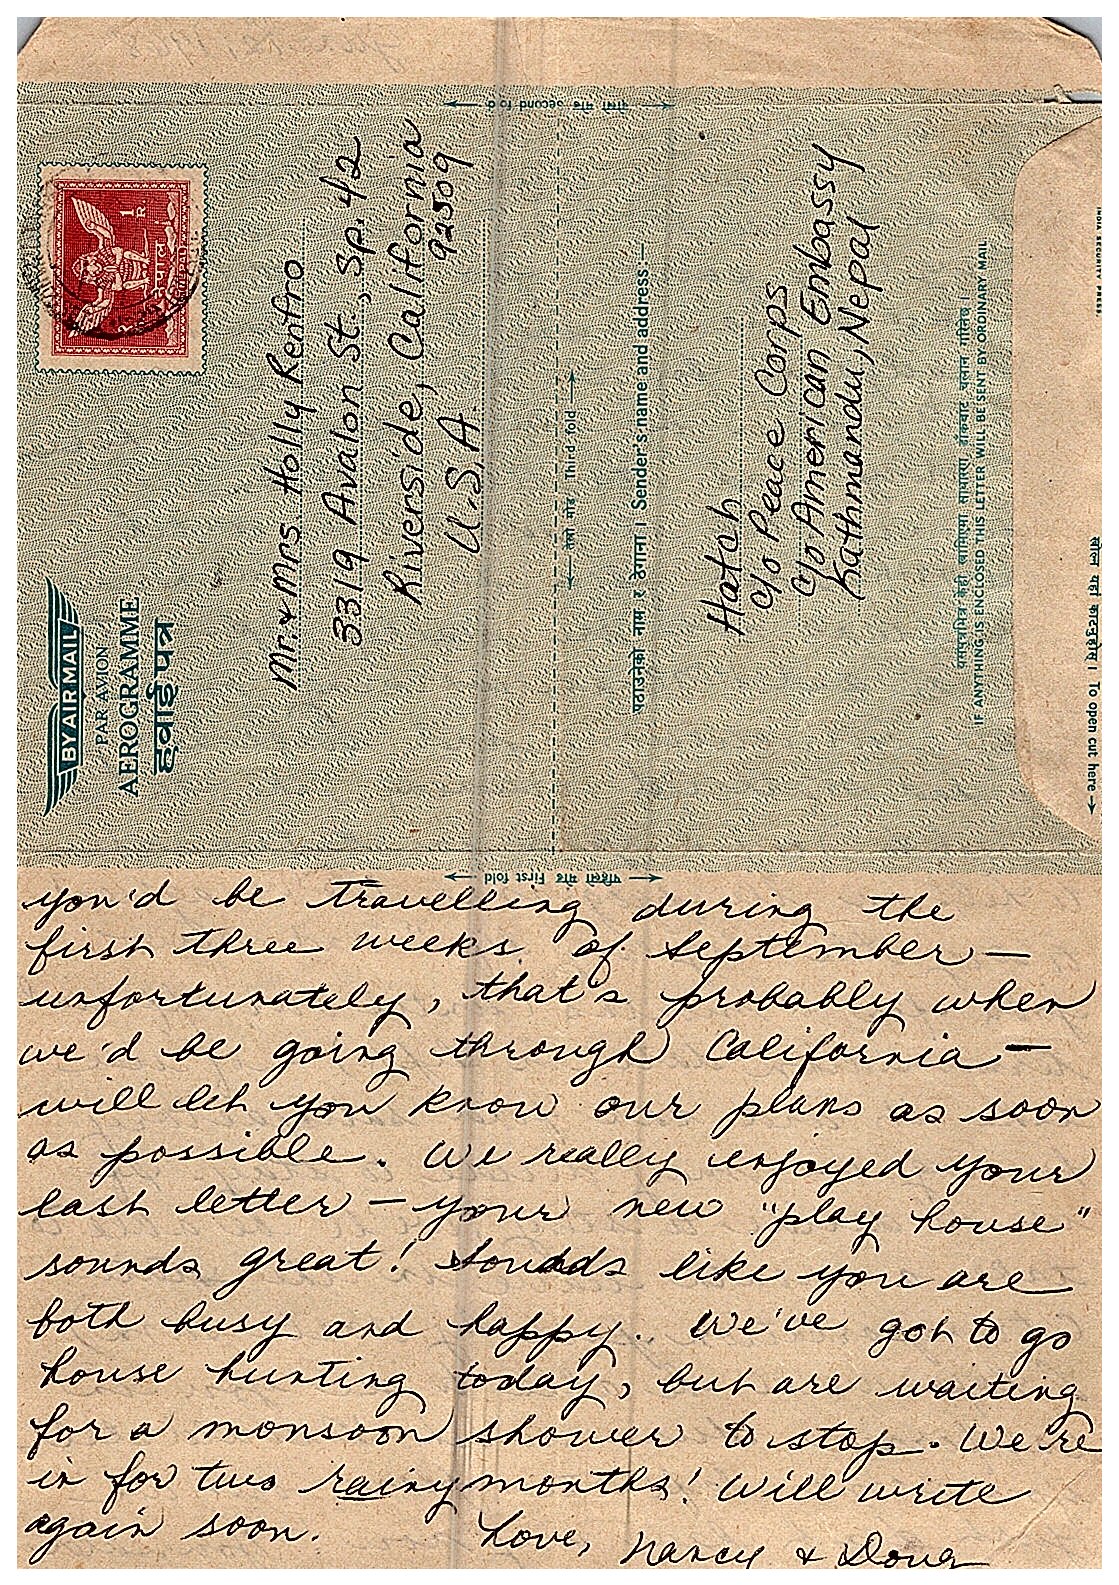 BY AIR MAIL
PAR AVION
AEROGRAMME
हवाई पत्र
1
R.
नेपाल
NEPAL
Mr. & Mrs Holly Renfro
3319 Avalon St., Sp. 42
Riverside, California
92509
U.S.A.
दोस्रो मोड Second fold
तेस्रो मोड Third fold
पठाउनेको नाम र ठेगाना । Sender's name and address:—
Hatch
c/o Peace Corps
c/o American Embassy
Kathmandu, Nepal
IF ANYTHING IS ENCLOSED THIS LETTER WILL BE SENT BY ORDINARY MAIL
INDIA SECURITY PRESS
To open cut here
पहिलो मोड First fold
you'd be travelling during the
first three weeks of September —
unfortunately, that's probably when
we'd be going through California —
will let you know our plans as soon
as possible. We really enjoyed your
last letter — your new "play house"
sounds great! Sounds like you are
both busy and happy. We've got to go
house hunting today, but are waiting
for a monsoon shower to stop. We're
in for two rainy months! Will write
again soon.
Love, Nancy & Doug